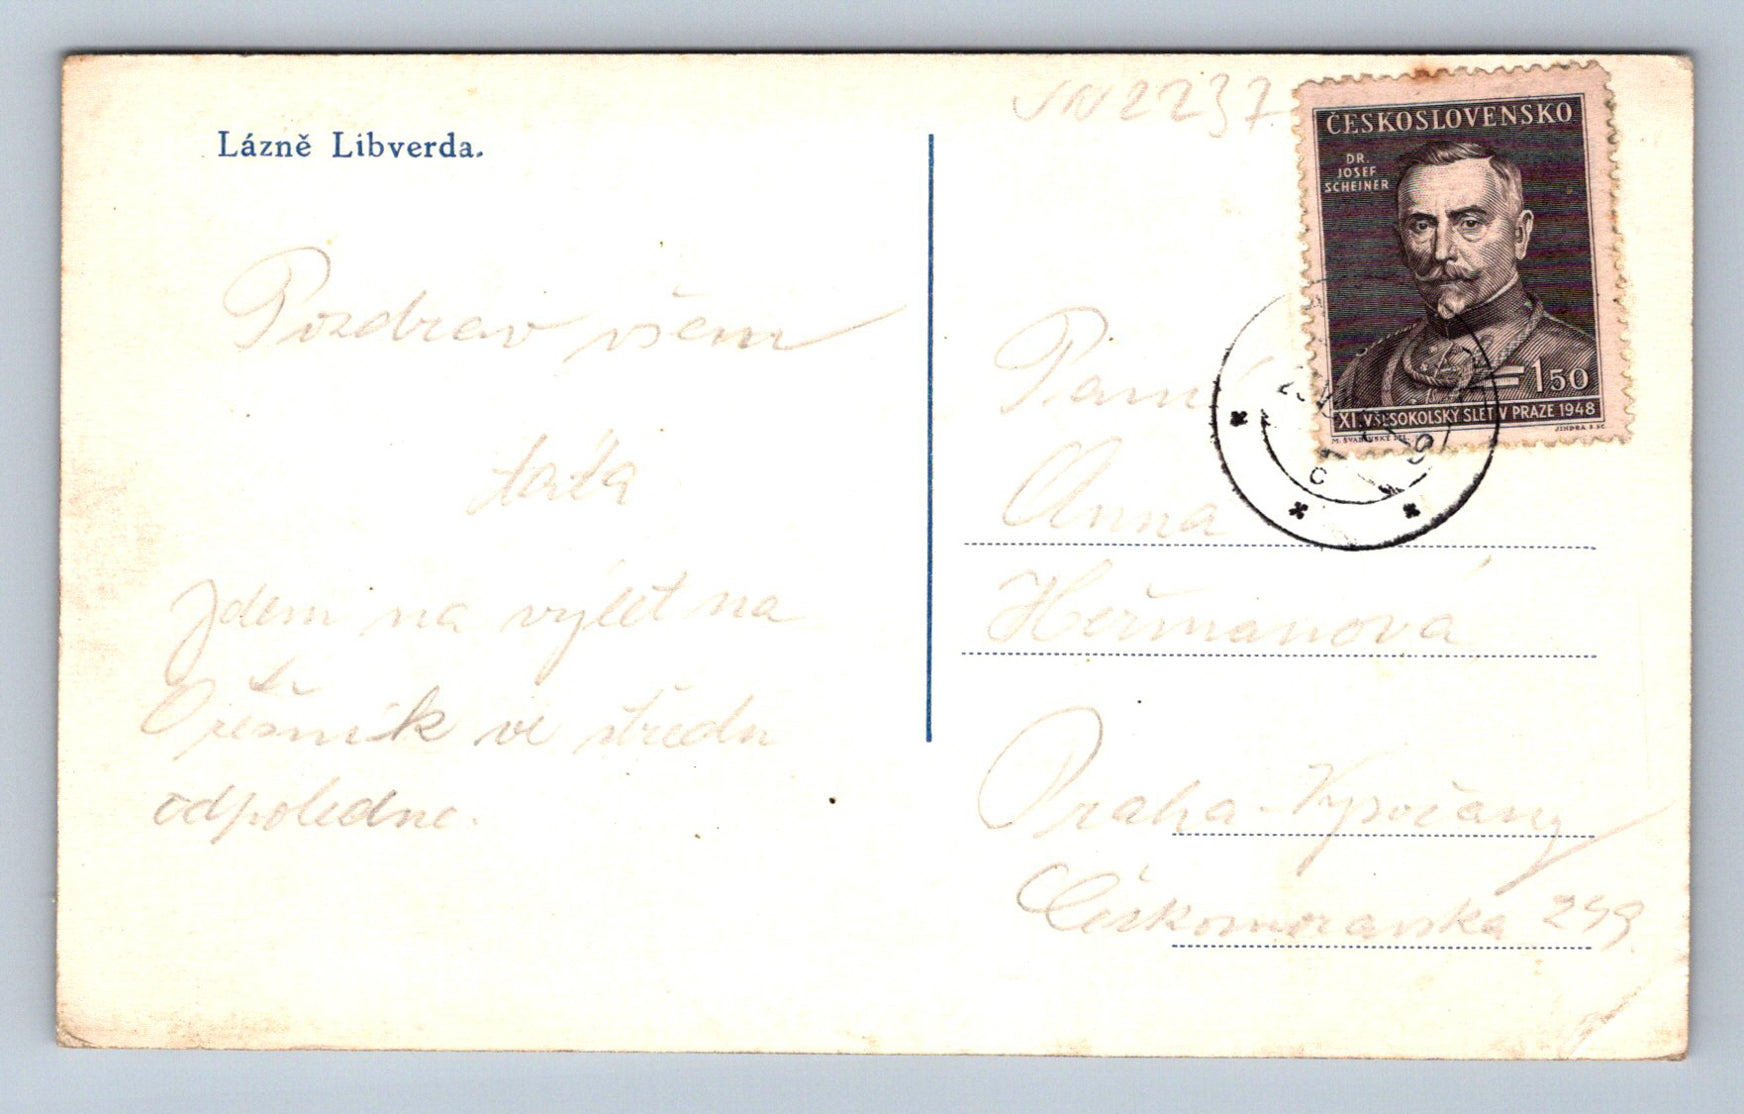 Lázně Libverda.
Pozdrav všem
táta
Jdem na výlet na
Ořešník ve středu
odpoledne.
2237
ČESKOSLOVENSKO
DR.
JOSEF
SCHEINER
1.50
XI. VŠESOKOLSKÝ SLET V PRAZE 1948
M. ŠVABINSKÝ DEL.
JINDRA SC.
Paní
Anna
Heřmanová
Praha-Vysočany
Českomoravská